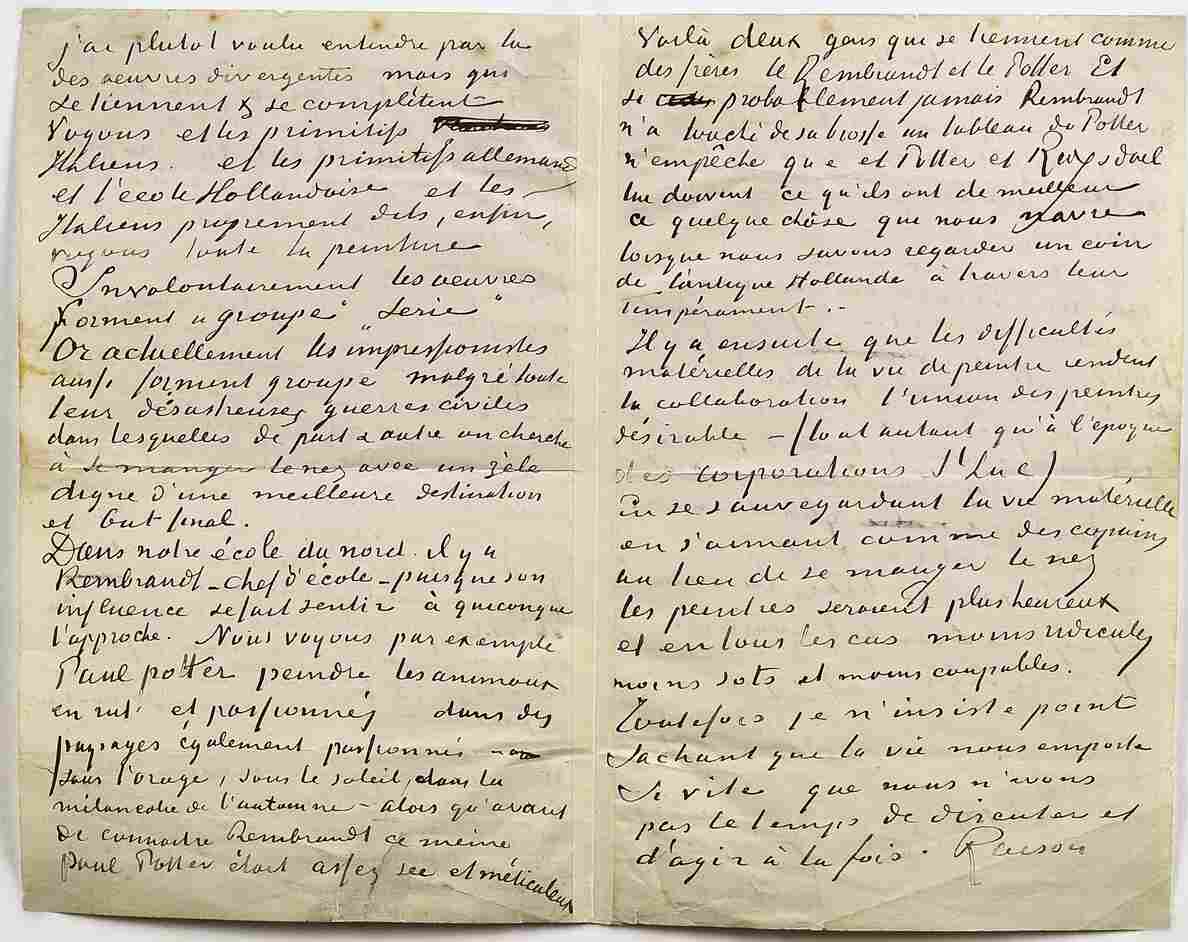 j'ai plutôt voulu entendre par là
des oeuvres divergentes mais qui
se tiennent & se complètent
Voyons et les primitifs
Italiens. et les primitifs allemands
et l'école Hollandaise et les
Italiens proprement dits, enfin,
voyons toute la peinture
Involontairement les oeuvres
forment „groupe" „série"
Or actuellement les impressionistes
aussi forment groupe malgré toute
leur désastreuses guerres civiles
dans lesquelles de part & autre on cherche
à se manger le nez avec un zèle
digne d'une meilleure destination
et but final.
Dans notre école du nord. il y a
Rembrandt – chef d'école – puisque son
influence se fait sentir à quiconque
l'approche. Nous voyons par exemple
Paul potter peindre les animaux
en rut et passionnés dans des
paysages également passionnés
sous l'orage, sous le soleil, dans la
mélancolie de l'automne – alors qu'avant
de connaitre Rembrandt ce même
paul Potter était assez sec et méticuleux
Voilà deux gens qui se tiennent comme
des frères le Rembrandt et le Potter Et
si probablement jamais Rembrandt
n'a touché de sa brosse un tableau du Potter
n'empêche que et Potter et Ruysdael
lui doivent ce qu'ils ont de meilleur
ce quelque chôse que nous navre
lorsque nous savons regarder un coin
de l'antique Hollande à travers leur
tempérament.-
Il y a ensuite que les difficultés
matérielles de la vie de peintre rendent
la collaboration l'union des peintres
désirable – (tout autant qu'à l'époque
des corporations St Luc)
En se sauvegardant la vie matérielle
en s'aimant comme des copains
au lieu de se manger le nez
les peintres seraient plus heureux
et en tous les cas moins ridicules
moins sots et moins coupables.
Toutefois je n'insiste point
Sachant que la vie nous emporte
si vite que nous n'avons
pas le temps de discuter et
d'agir à la fois. Raison